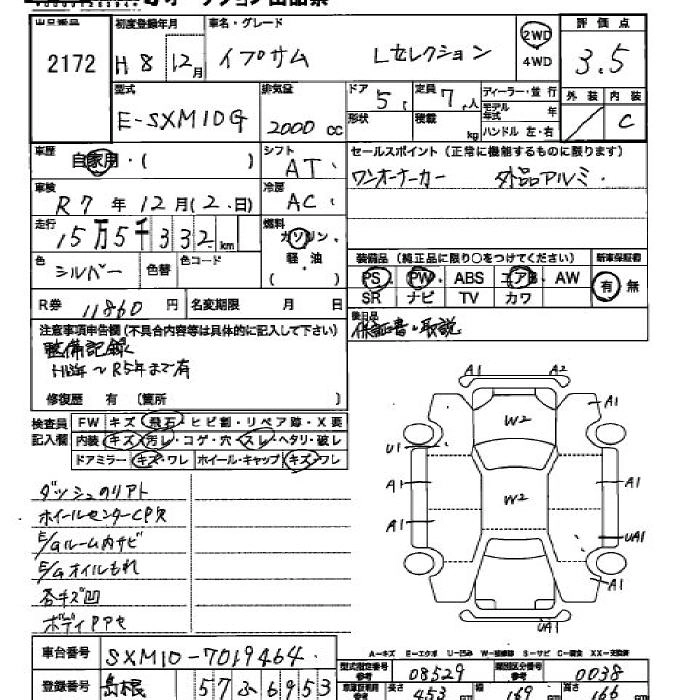 出品番号 初度登録年月 車名・グレード 2WD 評価点
2172 H8 12月 イプサム Lセレクション 4WD 3.5
型式 排気量 ドア 定員 ディーラー・並行 外装 内装
E-SXM10G 2000cc 5 7人 モデル年式 年 C
形状 積載 kg ハンドル 左・右
車歴 自家用・( ) シフト AT セールスポイント(正常に機能するものに限ります)
車検 R7年12月(2.日) 冷房 AC ワンオーナーカー 外品アルミ
走行 15万5千332km 燃料 ガソリン・軽油・( )
装備品(純正品に限り○をつけてください) 新車保証書
色 シルバー 色替 色コード PS PW ABS エアB AW 有 無
SR ナビ TV カワ
R券 11860円 名変期限 月 日 後日品
保証書・取説
注意事項申告欄(不具合内容等は具体的に記入して下さい)
整備記録
H15年~R5年まで有
修復歴 有 〔箇所 〕
検査員記入欄 FW キズ・飛石・ヒビ割・リペア跡・X要
内装 キズ・汚レ・コゲ・穴・スレ・ヘタリ・破レ
ドアミラー キズ・ワレ ホイール・キャップ キズ・ワレ
A1 A2
W2 A1
U1
A1 W2 A1
A1 UA1
A1
UA1
ダッシュのリアト
ホイールセンターCP欠
E/Gルーム内サビ
E/Gオイルもれ
各キズ凹
ボディPPセ
A-キズ E-エクボ U-凹み W-補修跡 S-サビ C-腐食 XX-交換済
車台番号 SXM10-7019464 型式指定番号 参考 08529 類別区分番号 参考 0038
登録番号 島根 57ふ6953 長さ 453 cm 幅 169 cm 高さ 166 cm